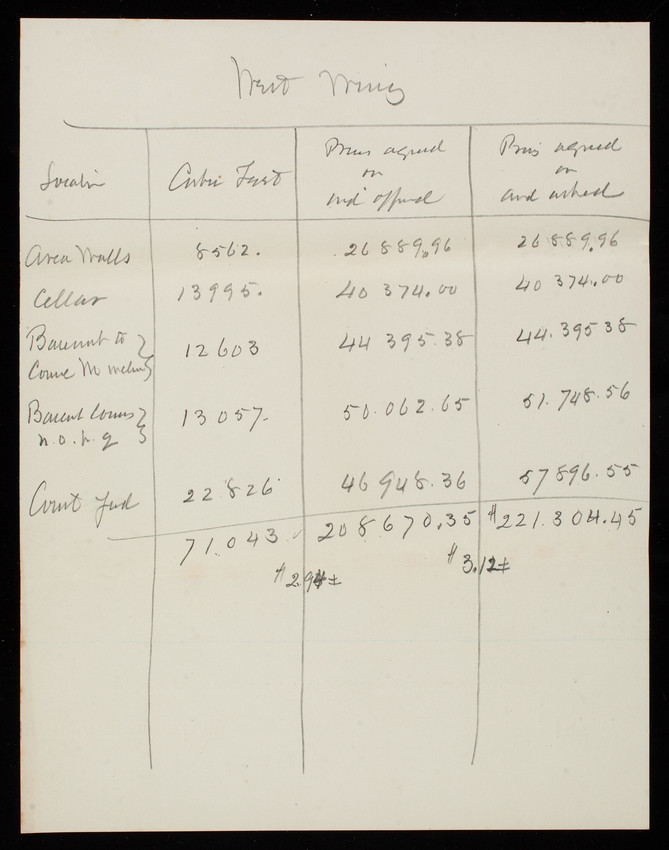 West Wing
Location Cubic Feet Prices agreed on and offered Prices agreed on and asked
Area Walls 8562. 26889.96 26889.96
Cellar 13995. 40374.00 40374.00
Basement to } 12603 44395.38 44.395 38
Course M }
Basement Courses } 13057. 50.062.65 51.748.56
n. o. p. q }
Court Yard 22826 46948.36 57896.55
71.043 208670.35 $221.304.45
$2.94± $3.12±